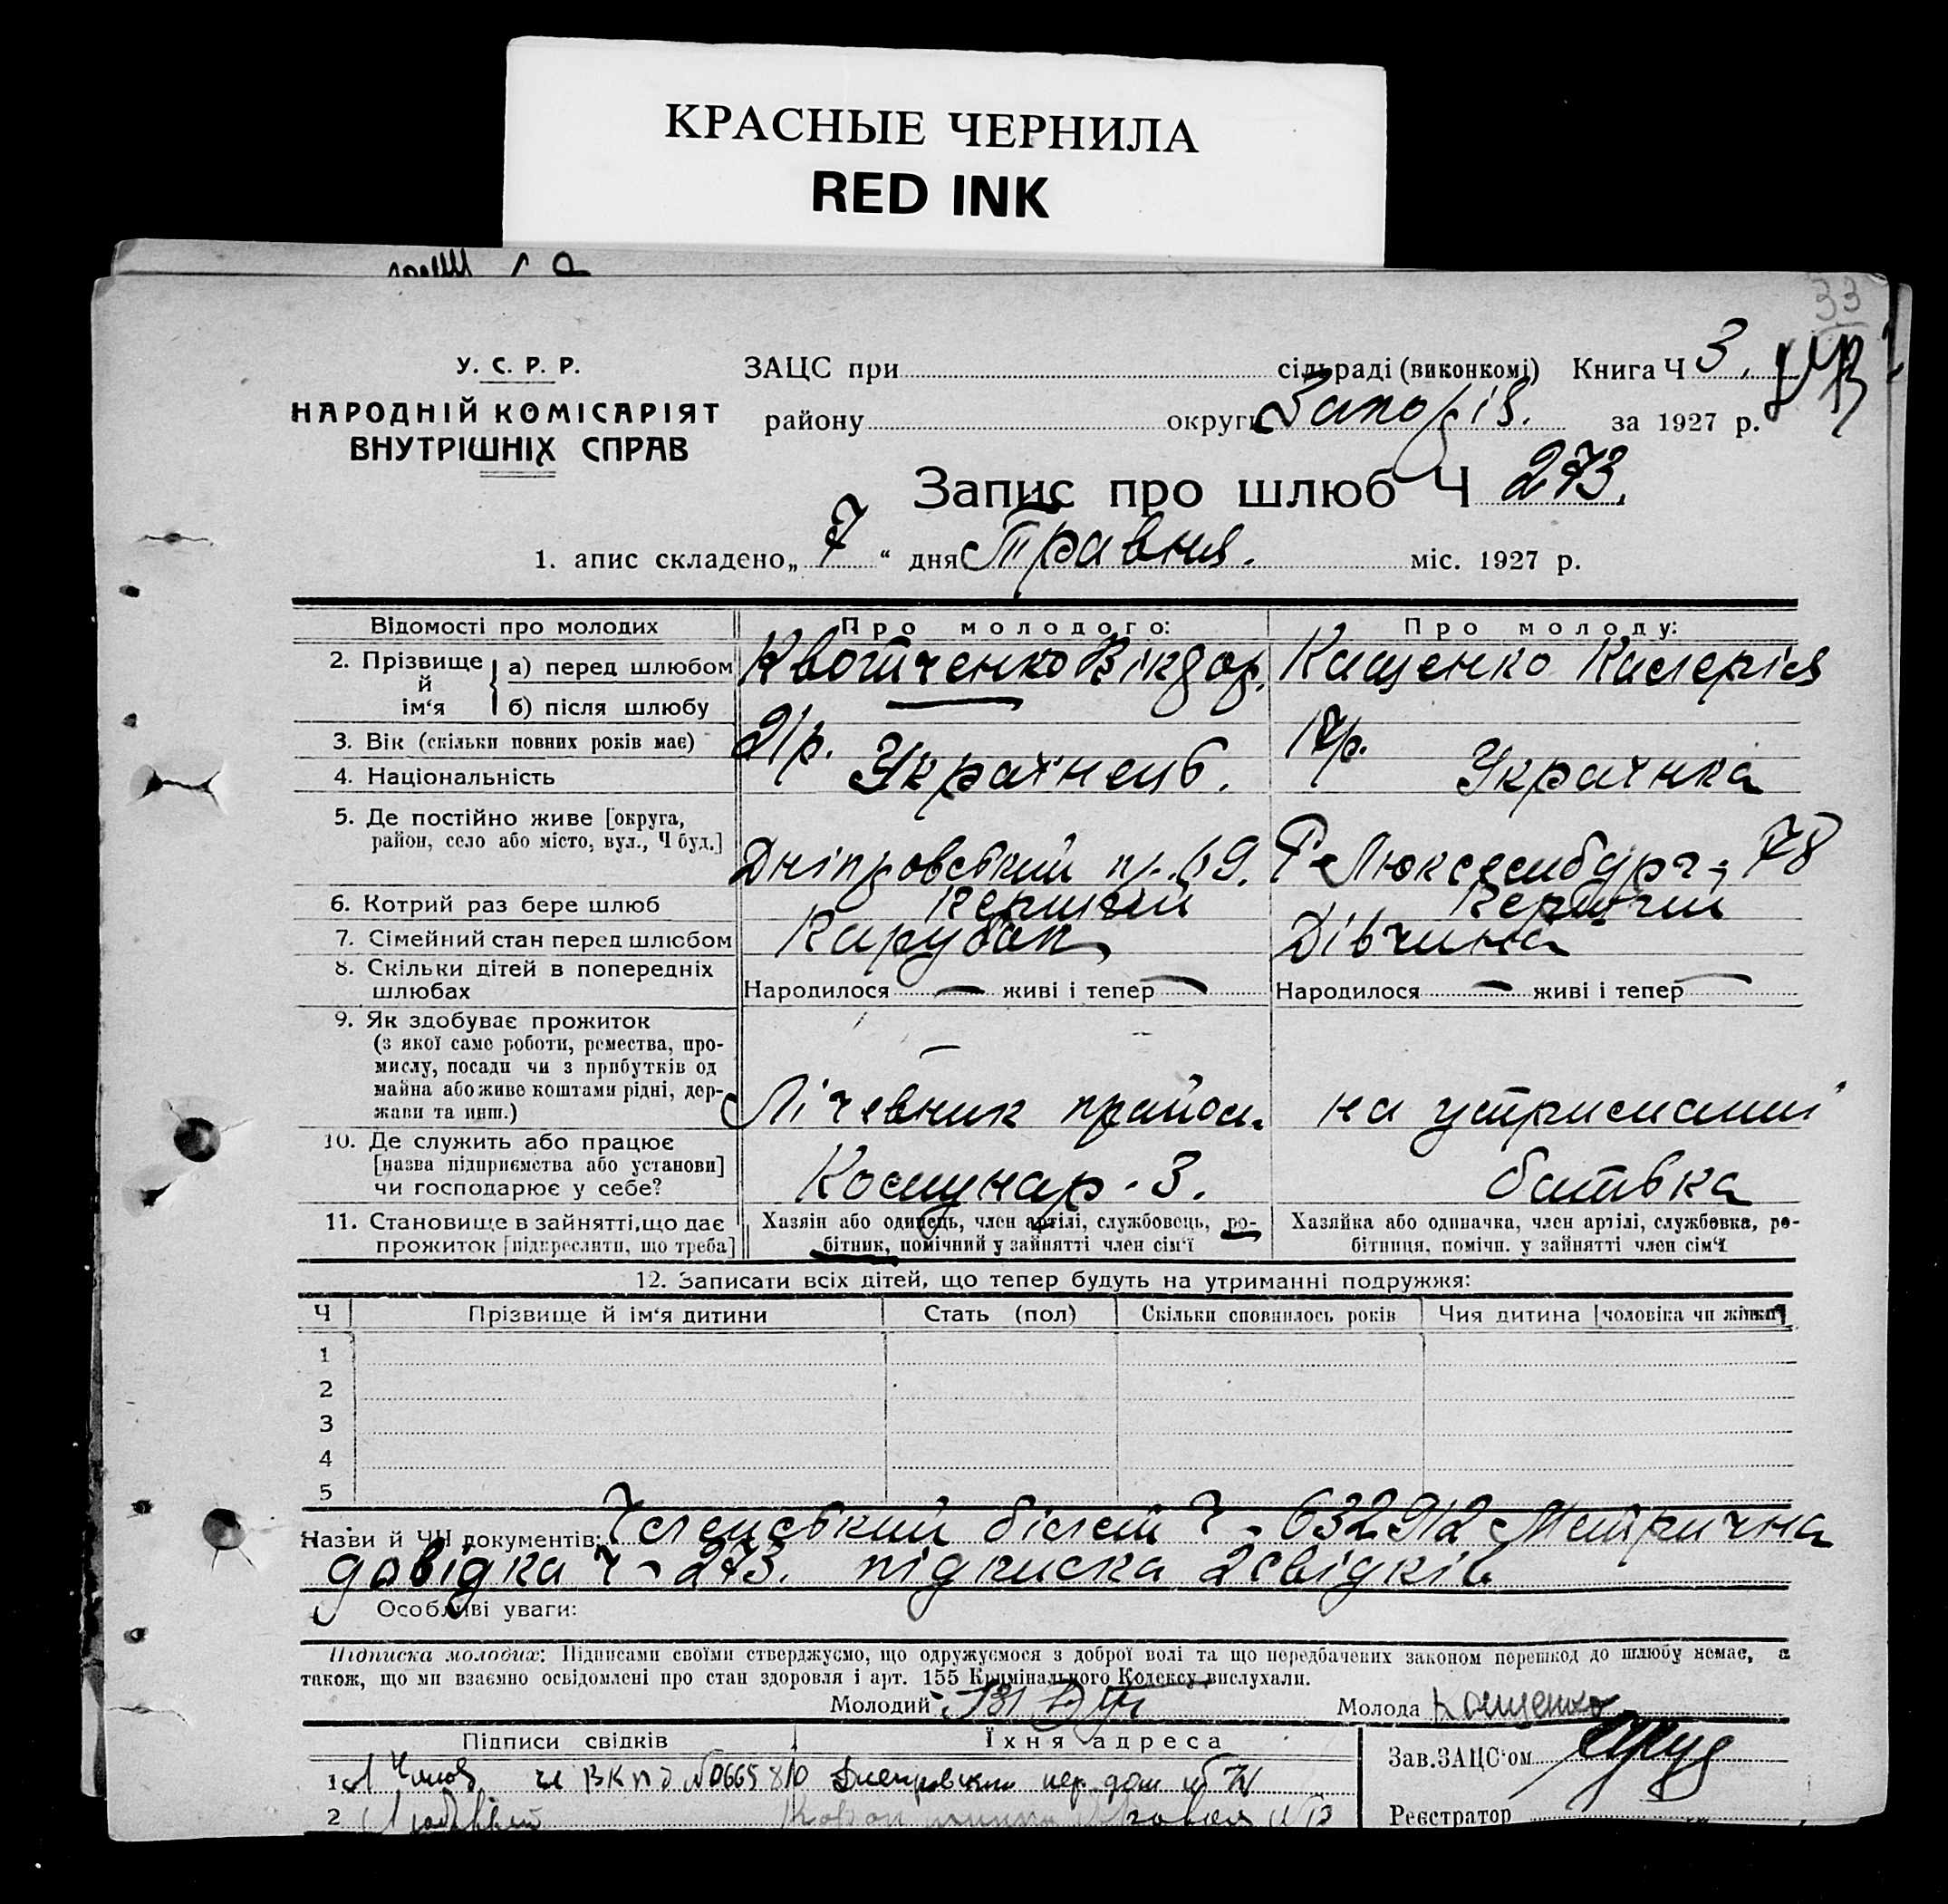 КРАСНЫЕ ЧЕРНИЛА
RED INK
33
У. С. Р. Р.
НАРОДНІЙ КОМІСАРІЯТ
ВНУТРІШНІХ СПРАВ
ЗАЦС при сільраді (виконкомі) Книга Ч 3.
району округи за 1927 р.
Запис про шлюб Ч 273.
1. апис складено „ 7 “ дня Травня. міс. 1927 р.
Відомості про молодих Про молодого: Про молоду:
2. Прізвище й ім‘я а) перед шлюбом Віктор. Кащенко Калерія
б) після шлюбу
3. Вік (скільки повних років має) 21р. 17р.
4. Національність Українець. Українка
5. Де постійно живе [округа,
район, село або місто, вул., Ч буд.] Дніпровський пр. 69. Р. Люксембург; 78
6. Котрий раз бере шлюб Перший Перший
7. Сімейний стан перед шлюбом Парубок Дівчина
8. Скільки дітей в попередніх
шлюбах Народилося — живі і тепер — Народилося — живі і тепер —
9. Як здобуває прожиток
(з якої саме роботи, ремества, про-
мислу, посади чи з прибутків од
майна або живе коштами рідні, дер-
жави та инш.) на утриманні
10. Де служить або працює
[назва підприємства або установи]
чи господарює у себе? Комунар - 3. батька
11. Становище в зайнятті, що дає
прожиток [підкреслити, що треба]
Хазяін або одинець, член артілі, службовець, ро-
бітник, помічний у зайнятті член сім‘ї
Хазяйка або одиначка, член артілі, службовка, ро-
бітниця, помічн. у зайнятті член сім‘ї
12. Записати всіх дітей, що тепер будуть на утриманні подружжя:
Ч Прізвище й ім‘я дитини Стать (пол) Скільки сповнилось років Чия дитина [чоловіка чи жінки]
1
2
3
4
5
Назви й ЧЧ документів: Членський білет Ч - 632912 Метрична
довідка Ч - 273. підписка 2 свідків
Особливі уваги:
Підписка молодих: Підписами своїми стверджуємо, що одружуємося з доброї волі та що передбачених законом перешкод до шлюбу немає, а
також, що ми взаємно освідомлені про стан здоровля і арт. 155 Кримінального Кодексу вислухали.
Молодий Молода Кащенко
Підписи свідків Їхня адреса
Зав. ЗАЦС‘ом
1 ВКПб №0665810
2
Реєстратор